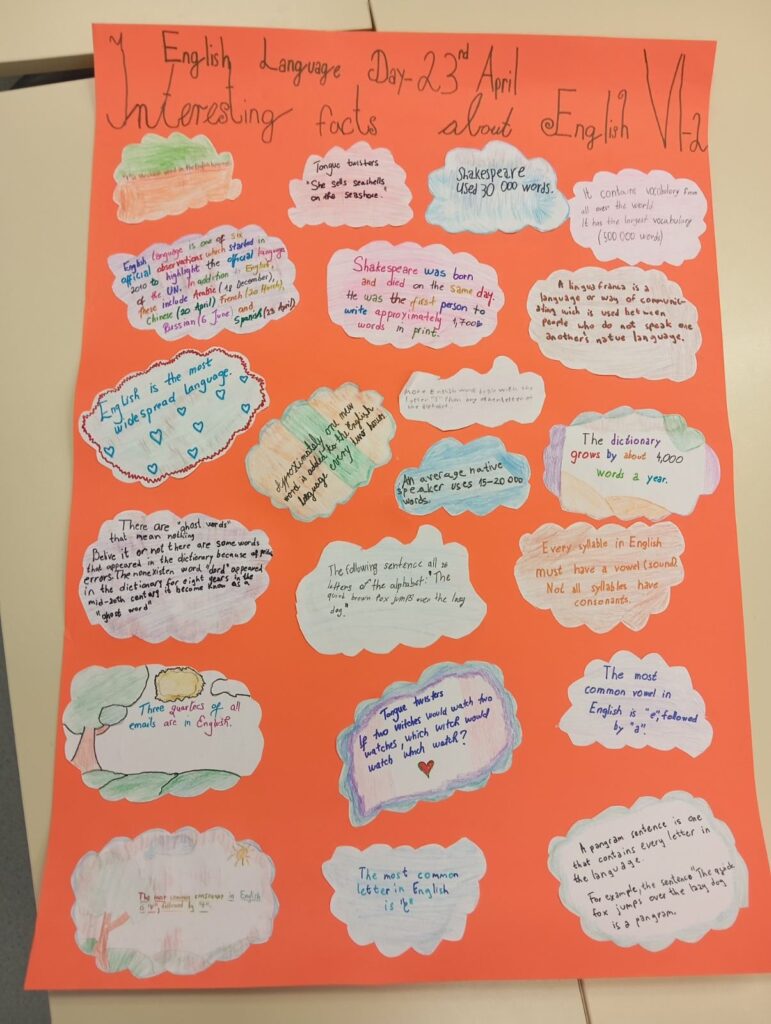 English Language Day-23rd April
Interesting facts about English VI-2
is the shortest word in the English language
Tongue twisters
"She sells seashells
on the seashore."
Shakespeare
used 30 000 words.
It contains vocabulary from
all over the world.
It has the largest vocabulary
(500 000 words)
English language is one of six
official observations which started in
2010 to highlight the official language
of the UN. In addition to English,
these include Arabic (18 December),
Chinese (20 April) French (20 March),
Russian (6 June) and
Spanish (23 April)
Shakespeare was born
and died on the same day.
He was the first person to
write approximately 1,700
words in print.
A lingua franca is a
language or way of communic-
ating wich is used between
people who do not speak one
another's native language.
English is the most
widespread language.
Aproximately one new
word is added to the English
language every two hours
More English words begin with the
letter "S" than any other letter of
the alphabet.
An average native
speaker uses 15-20 000
words.
The dictionary
grows by about 4,000
words a year.
There are "ghost words"
that mean nothing
Belive it or not there are some words
that appeared in the dictionary because of
errors. The nonexisten word "dord" appeared
in the dictionary for eight years in the
mid-20th century. it become know as a
"ghost word"
The following sentence all 26
letters of the alphabet: "The
quick brown fox jumps over the lazy
dog."
Every syllable in English
must have a vowel (sound).
Not all syllables have
consonants.
Three quarters of all
emails are in English.
Tongue twisters
If two witches would watch two
watches, which witch would
watch which watch?
The most
common vowel in
English is "e", followed
by "a".
The most common consonant in English
is , followed by
The most common
letter in English
is
A pangram sentence is one
that contains every letter in
the language.
For example, the sentence "The quick
fox jumps over the lazy dog
is a pangram.